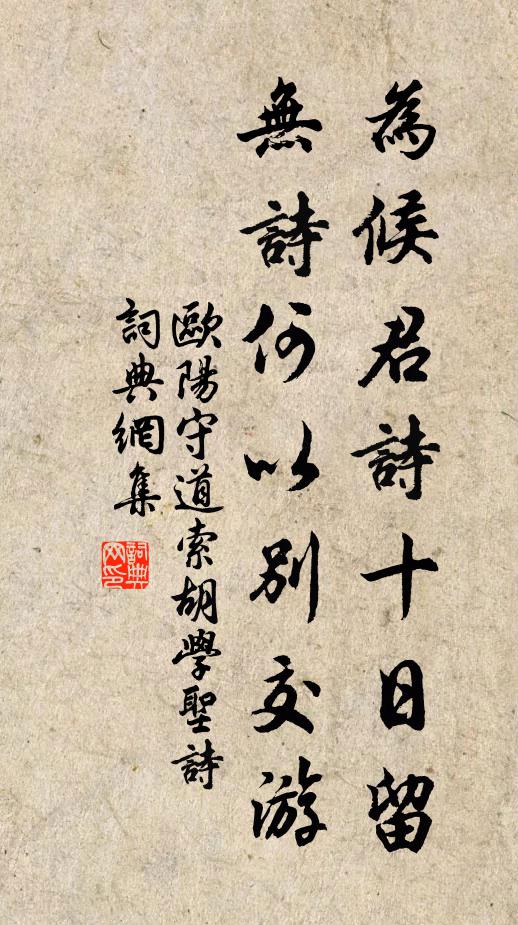 為候君詩十日留
無詩何以別交游
歐陽守道索胡學聖詩
詞典網集
詞典網印